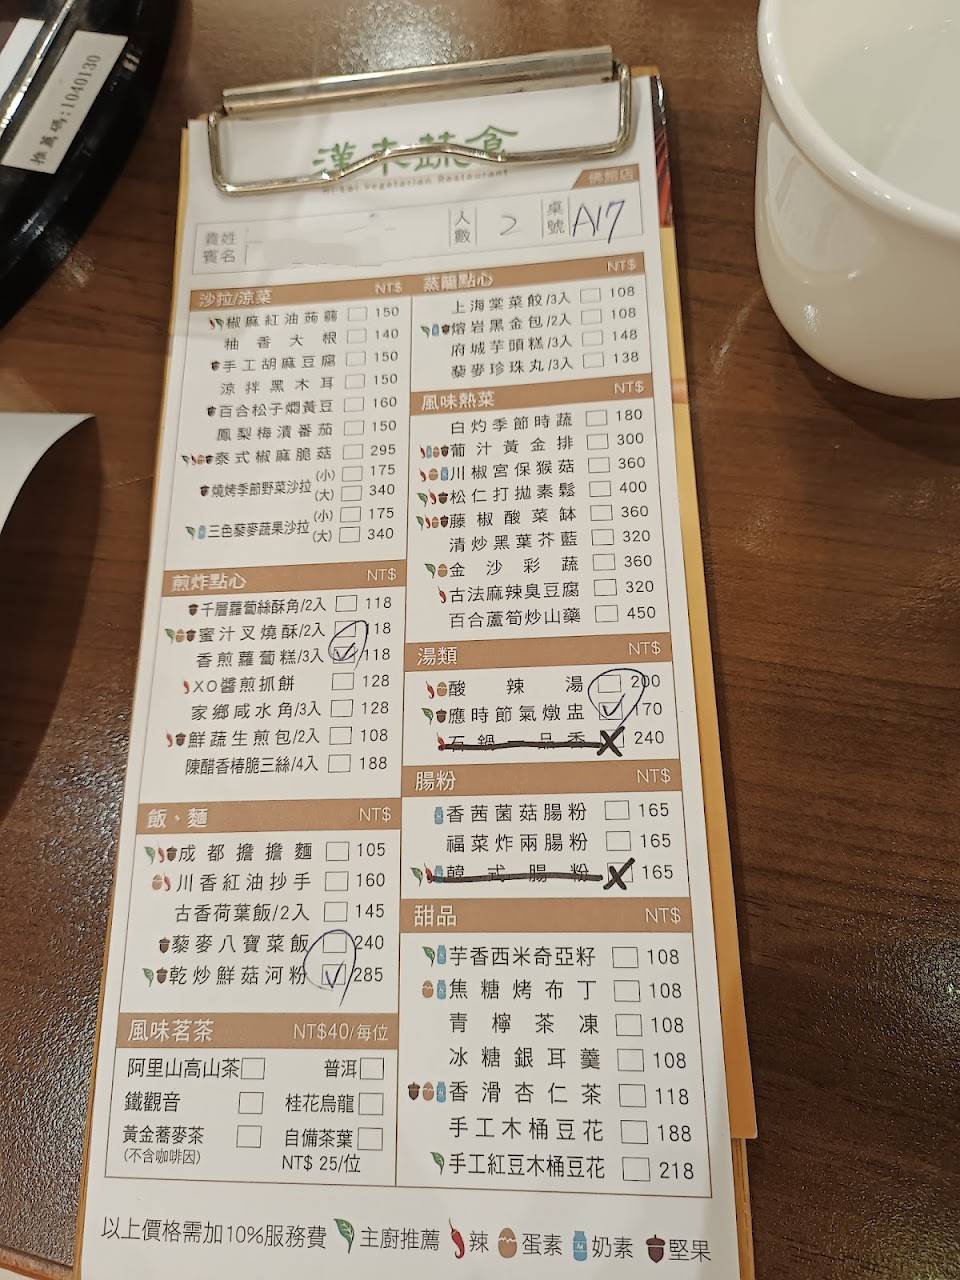 推薦碼:1040130
漢來蔬食
Hi-Lai Vegetarian Restaurant
佛館店
貴賓姓名 人數 2 桌號 A17
沙拉/涼菜 NT$
椒麻紅油蒟蒻 150
柚香大根 140
手工胡麻豆腐 150
涼拌黑木耳 150
百合松子燜黃豆 160
鳳梨梅漬番茄 150
泰式椒麻脆菇 295
燒烤季節野菜沙拉 (小) 175
(大) 340
三色藜麥蔬果沙拉 (小) 175
(大) 340
煎炸點心 NT$
千層蘿蔔絲酥角/2入 118
蜜汁叉燒酥/2入 118
香煎蘿蔔糕/3入 ✓ 118
XO醬煎抓餅 128
家鄉咸水角/3入 128
鮮蔬生煎包/2入 108
陳醋香椿脆三絲/4入 188
飯、麵 NT$
成都擔擔麵 105
川香紅油抄手 160
古香荷葉飯/2入 145
藜麥八寶菜飯 240
乾炒鮮菇河粉 ✓ 285
風味茗茶 NT$40/每位
阿里山高山茶 普洱
鐵觀音 桂花烏龍
黃金蕎麥茶 自備茶葉
(不含咖啡因) NT$ 25/位
蒸籠點心 NT$
上海棠菜餃/3入 108
熔岩黑金包/2入 108
府城芋頭糕/3入 148
藜麥珍珠丸/3入 138
風味熱菜 NT$
白灼季節時蔬 180
葡汁黃金排 300
川椒宮保猴菇 360
松仁打拋素鬆 400
藤椒酸菜缽 360
清炒黑葉芥藍 320
金沙彩蔬 360
古法麻辣臭豆腐 320
百合蘆筍炒山藥 450
湯類 NT$
酸辣湯 200
應時節氣燉盅 ✓ 170
石鍋一品香 X 240
腸粉 NT$
香茜菌菇腸粉 165
福菜炸兩腸粉 165
韓式腸粉 X 165
甜品 NT$
芋香西米奇亞籽 108
焦糖烤布丁 108
青檸茶凍 108
冰糖銀耳羹 108
香滑杏仁茶 118
手工木桶豆花 188
手工紅豆木桶豆花 218
以上價格需加10%服務費 主廚推薦 辣 蛋素 奶素 堅果